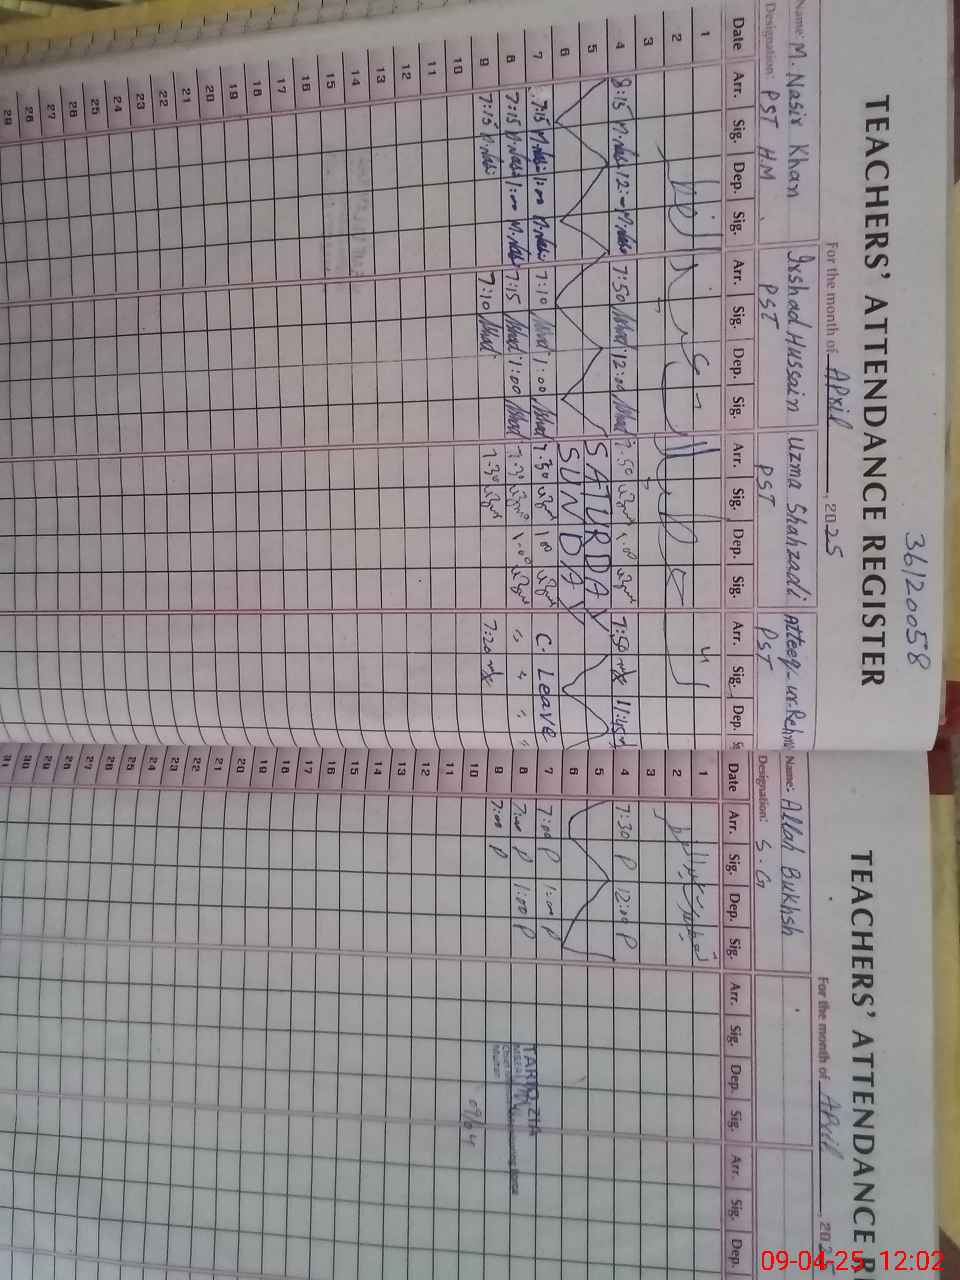 36120058
TEACHERS' ATTENDANCE REGISTER
For the month of April, 2025
Name: M. Nasir Khan Irshad Hussain Uzma Shahzadi Atteeq-ur-Rehm
Designation: PST H.M PST PST PST
Date Arr. Sig. Dep. Sig. Arr. Sig. Dep. Sig. Arr. Sig. Dep. Sig. Arr. Sig. Dep.
1
2
3
4 8:15 M.Nasir 12:00 M.Nasir 7:50 Irshad 12:00 Irshad 7:50 1:00 7:50 11:45
5 SATURDAY
6 SUNDAY
7 7:15 M.Nasir 1:00 M.Nasir 7:10 Irshad 1:00 Irshad 7:30 1:00 C. Leave
8 7:15 M.Nasir 1:00 M.Nasir 7:15 Irshad 1:00 Irshad 7:30 1:00 " " " "
9 7:15 M.Nasir 7:10 Irshad 7:30 7:20
10
11
12
13
14
15
16
17
18
19
20
21
22
23
24
25
26
27
28
29
TEACHERS' ATTENDANCE R
For the month of April, 2025
Name: Allah Bukhsh
Designation: S.G
Date Arr. Sig. Dep. Sig. Arr. Sig. Dep. Sig. Arr. Sig. Dep.
1
2
3
4 7:30 P 12:00 P
5
6
7 7:00 P 1:00 P
8 7:00 P 1:00 P
9 7:00 P
10
11
12
13
14
15
16
17
18
19
20
21
22
23
24
25
26
27
28
29
30
31
TARIQ ZIA
09/04
09-04-25 12:02